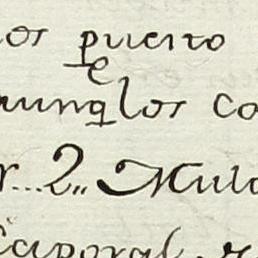 los puerto
aunq.e los co
r... 2,, Mula
Caporal